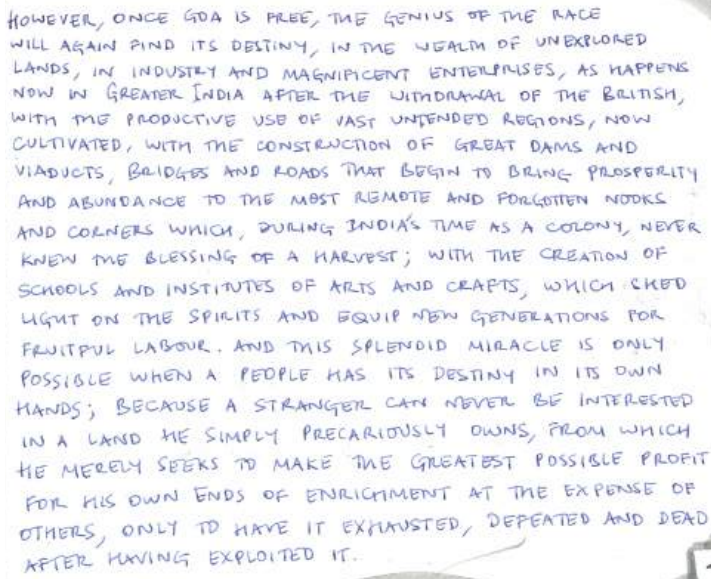 HOWEVER, ONCE GOA IS FREE, THE GENIUS OF THE RACE
WILL AGAIN FIND ITS DESTINY, IN THE WEALTH OF UNEXPLORED
LANDS, IN INDUSTRY AND MAGNIFICENT ENTERPRISES, AS HAPPENS
NOW IN GREATER INDIA AFTER THE WITHDRAWAL OF THE BRITISH,
WITH THE PRODUCTIVE USE OF VAST UNTENDED REGIONS, NOW
CULTIVATED, WITH THE CONSTRUCTION OF GREAT DAMS AND
VIADUCTS, BRIDGES AND ROADS THAT BEGIN TO BRING PROSPERITY
AND ABUNDANCE TO THE MOST REMOTE AND FORGOTTEN NOOKS
AND CORNERS WHICH, DURING INDIA'S TIME AS A COLONY, NEVER
KNEW THE BLESSING OF A HARVEST; WITH THE CREATION OF
SCHOOLS AND INSTITUTES OF ARTS AND CRAFTS, WHICH SHED
LIGHT ON THE SPIRITS AND EQUIP NEW GENERATIONS FOR
FRUITFUL LABOUR. AND THIS SPLENDID MIRACLE IS ONLY
POSSIBLE WHEN A PEOPLE HAS ITS DESTINY IN ITS OWN
HANDS; BECAUSE A STRANGER CAN NEVER BE INTERESTED
IN A LAND HE SIMPLY PRECARIOUSLY OWNS, FROM WHICH
HE MERELY SEEKS TO MAKE THE GREATEST POSSIBLE PROFIT
FOR HIS OWN ENDS OF ENRICHMENT AT THE EXPENSE OF
OTHERS, ONLY TO HAVE IT EXHAUSTED, DEFEATED AND DEAD
AFTER HAVING EXPLOITED IT.